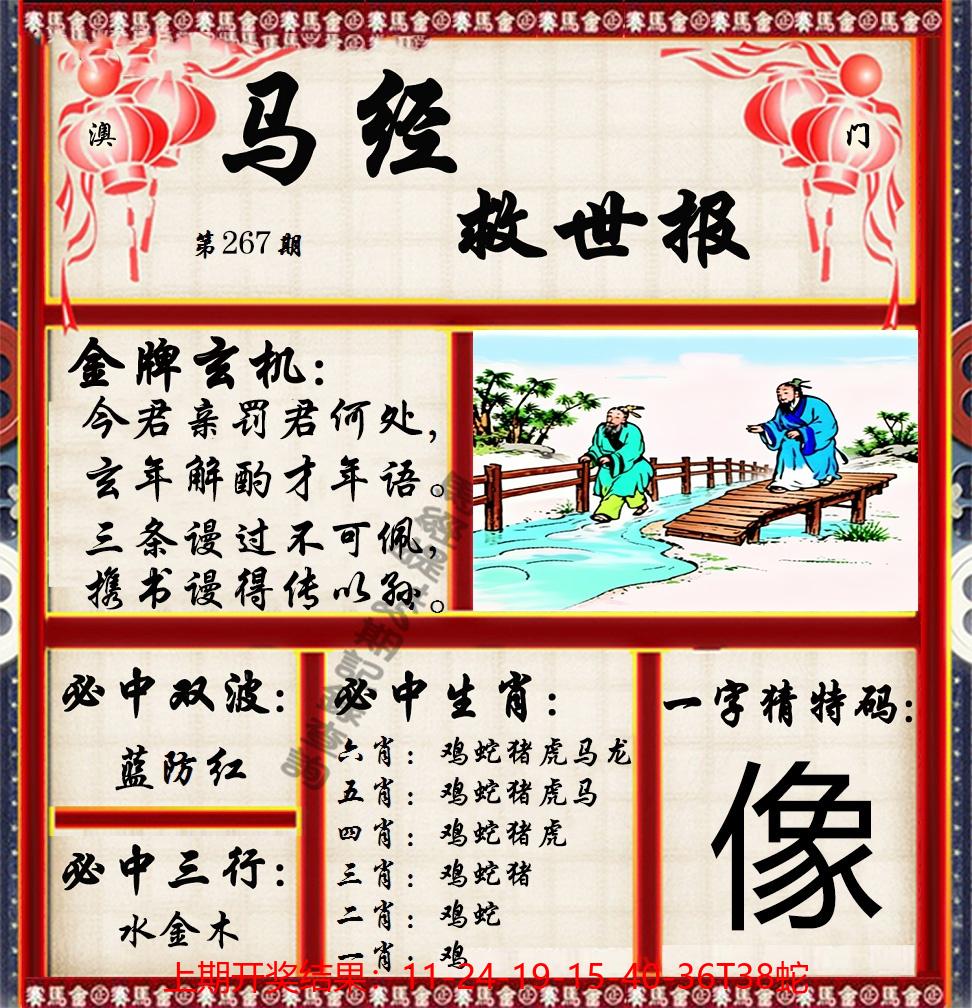 澳
门
马经
救世报
第267期
金牌玄机：
今君亲罚君何处，
玄年解酌才年语。
三条谩过不可佩，
携书谩得传以孙。
必中双波：
蓝防红
必中三行：
水金木
必中生肖：
六肖：鸡蛇猪虎马龙
五肖：鸡蛇猪虎马
四肖：鸡蛇猪虎
三肖：鸡蛇猪
二肖：鸡蛇
一肖：鸡
一字猜特码：
像
上期开奖结果：11-24-19-15-40-36T38蛇